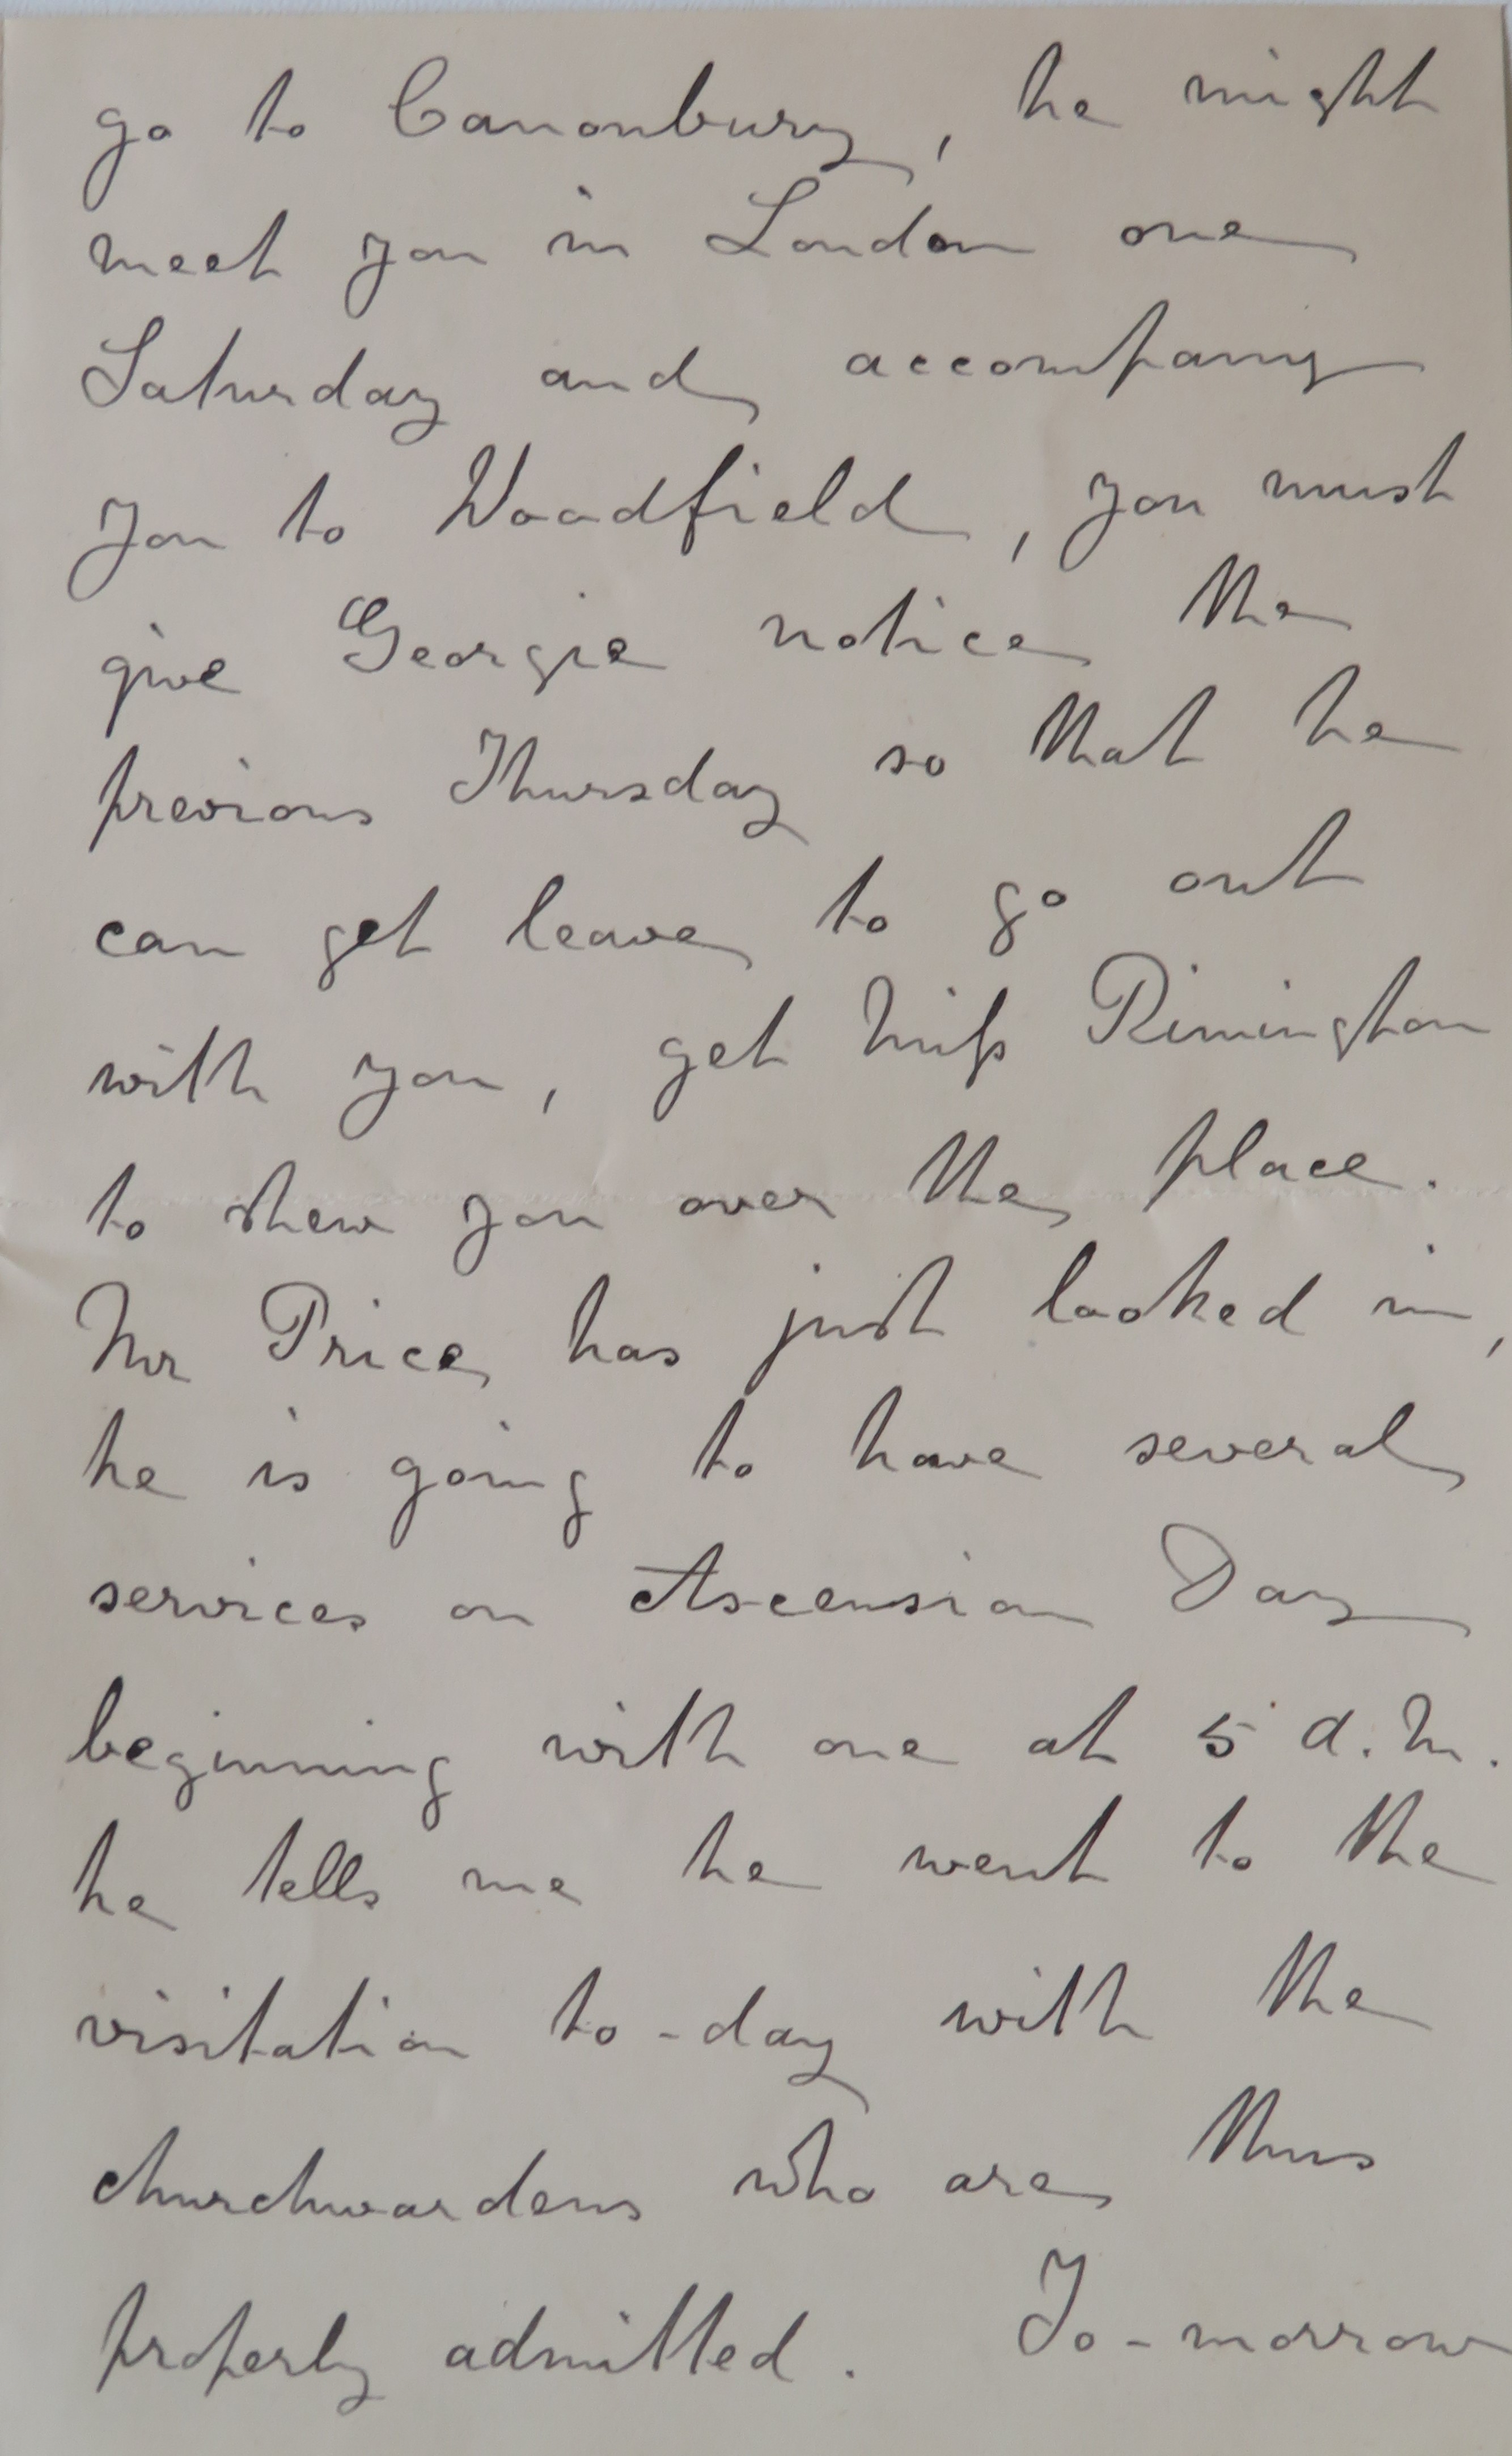 go to Canonbury, he might
meet you in London one
Saturday and accompany
you to Woodfield, you must
give Georgie notice the
previous Thursday so that he
can get leave to go out
with you, get Miſs Rimington
to shew you over the place.
Mr Price has just looked in,
he is going to have several
services on Ascension Day
beginning with one at 5 a.m.
he tells me he went to the
visitation to-day with the
churchwardens who are thus
properly admitted. To-morrow